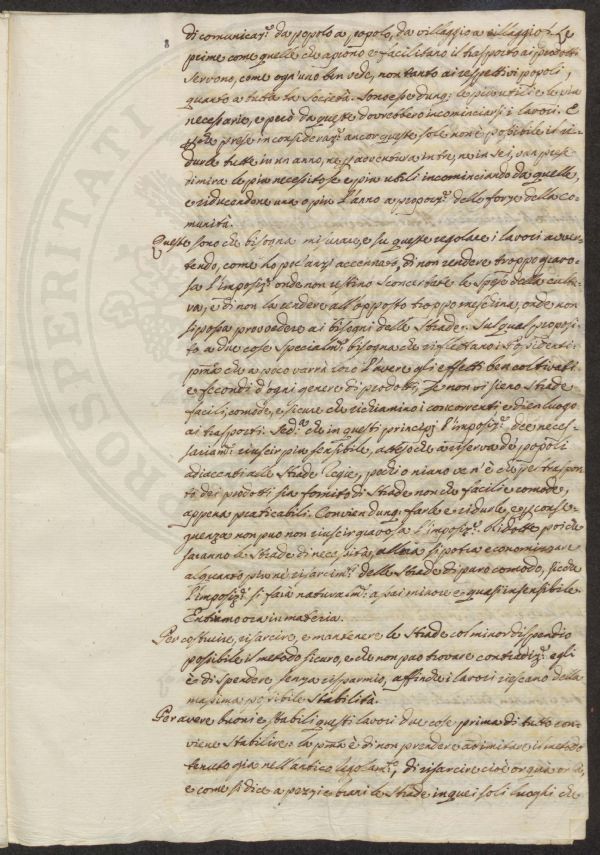 8
di comunicaz.e da popolo a popolo, da villaggio a villaggio. Le
prime come quelle che aprono e facilitano il trasporto ai prodotti
servono, come ogn'uno ben vede, non tanto ai respettivi popoli,
quanto a tutta la Società. Son esse dunq; le più utili e le più
necessarie, e però da queste dovrebbero incominciarsi i lavori. E
prese in consideraz.e ancor queste sole non è possibile il ri-
durle tutte in un anno, ne in tre, ne in sei, van prese
di mira le più necessitose e più utili incominciando da quelle,
e riducendone una o più l'anno a proporz.e delle forze della Co-
munità.
Queste sono che bisogna misurare, e su queste regolare i lavori avver-
tendo, come ho più anzi accennato, di non rendere troppo gravo-
sa l'imposiz.e onde non restino sconcertate le spese della cultu-
ra, e di non la rendere all'opposto troppo meschina, onde non
si possa provvedere ai bisogni delle Strade. Sul qual proposi-
to a due cose specialm.e bisogna che riflettano i Possidenti.
pma che a poco varrà loro l'avere gli effetti ben coltivati
e fecondi d'ogni genere di prodotti, se non vi sieno Strade
facili, comode, e sicure che richiamino i concorrenti e dien luogo
ai trasporti. Sed.a che in questi principj l'imposiz.e dee neces-
sariam.e riuscir più sensibile, attesoche a riserva de' popoli
adiacenti alle Strade Regie, pochi o niano ve n'è che pe' traspor-
ti dei prodotti sia fornito di Strade non che facili e comode,
appena praticabili. Convien dunq; farle e ridurle, e p conse-
guenza non può non riuscir gravosa l'imposiz.e. Ridotte poi che
saranno le Strade di necessità, allora si potrà economizzare
alquanto più ne' risarcim.i delle Strade di puro comodo, sicchè
l'imposiz.e si farà natural m.e assai minore e quasi insensibile
Entriamo ora in materia.
Per costruire, risarcire, e mantenere le Strade col minor dispendio
possibile il metodo sicuro, e che non può trovare contradiz.e egli
è di spendere senza risparmio, affinche i lavori riescano della
massima possibile Stabilità.
Per avere buoni e stabili questi lavori due cose prima di tutto con-
viene stabilire: la pma è di non prendere ad imitare il metodo
tenuto già nell'antico regolam.o, di risarcire cioè or quà or là,
e come si dice a pezzi e brani le Strade in quei soli luoghi che
PROSPERITATI